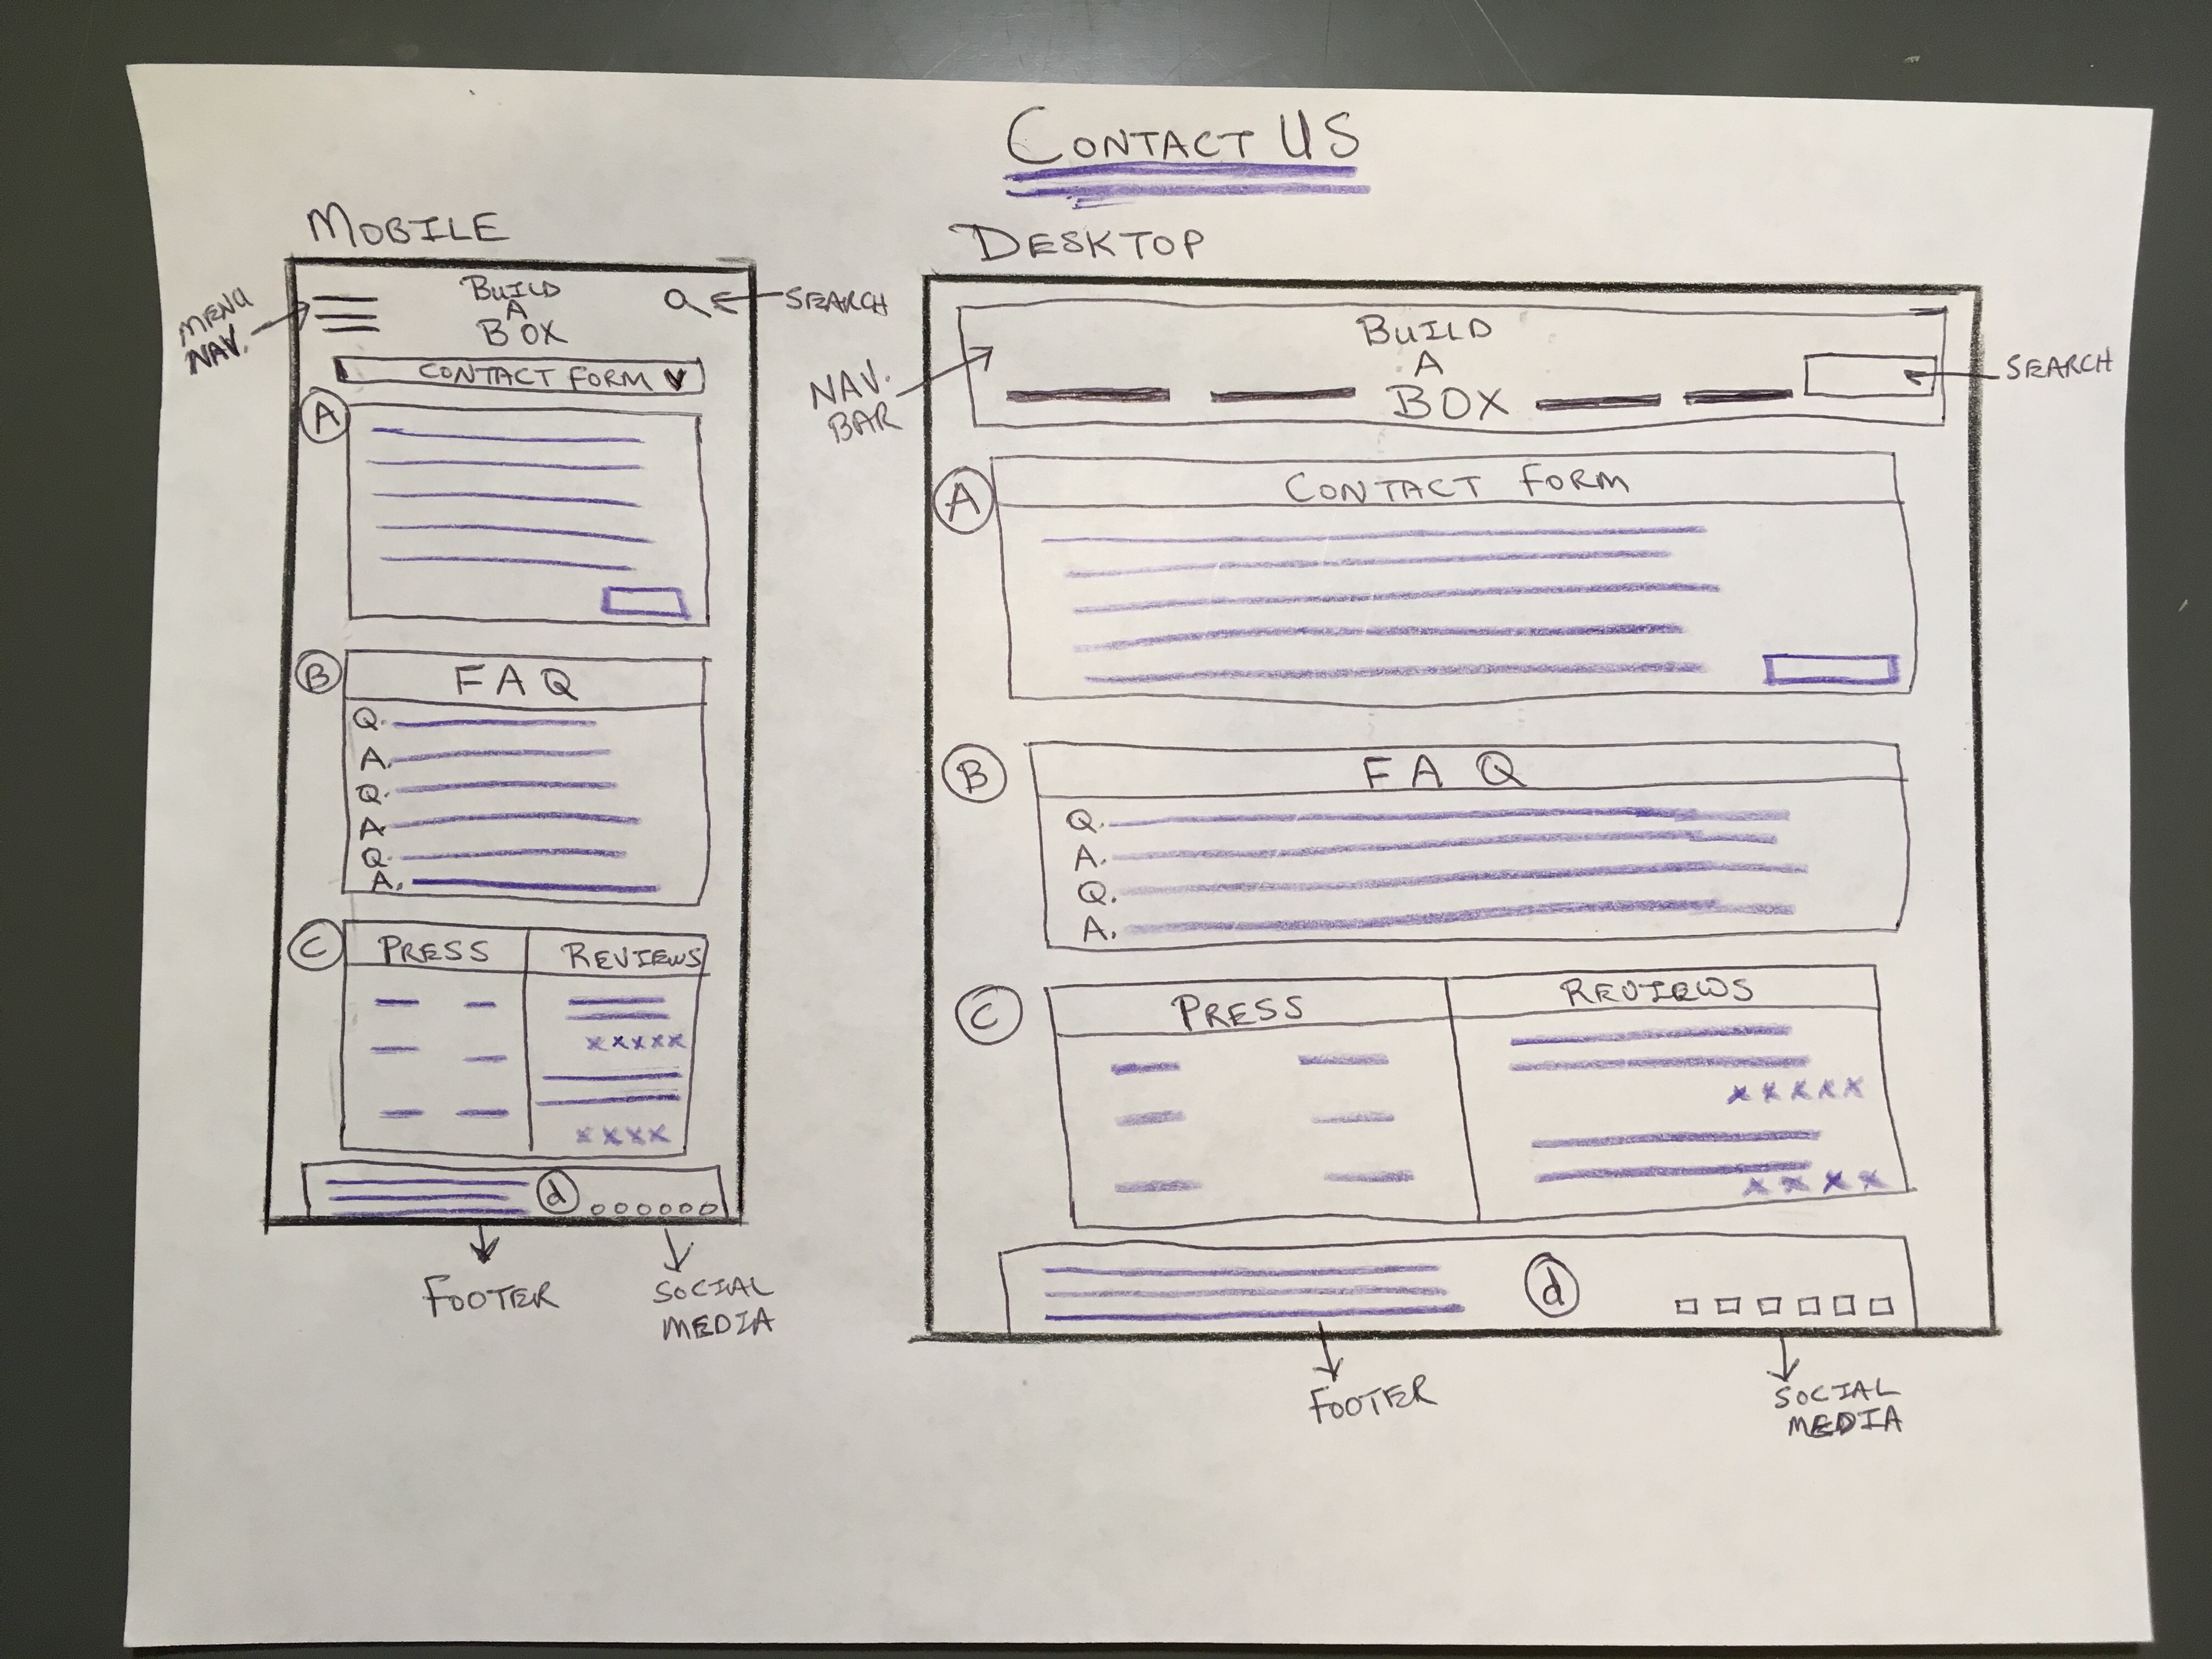 CONTACT US
MOBILE
MENU
NAV.
BUILD
A
BOX
SEARCH
CONTACT FORM
A
B
FAQ
Q.
A.
Q.
A
Q.
A.
C
PRESS
REVIEWS
XXXXX
XXXX
d
FOOTER
SOCIAL
MEDIA
DESKTOP
NAV.
BAR
BUILD
A
BOX
SEARCH
A
CONTACT FORM
B
FAQ
Q.
A.
Q.
A.
C
PRESS
REVIEWS
XXXXX
XXXX
d
FOOTER
SOCIAL
MEDIA